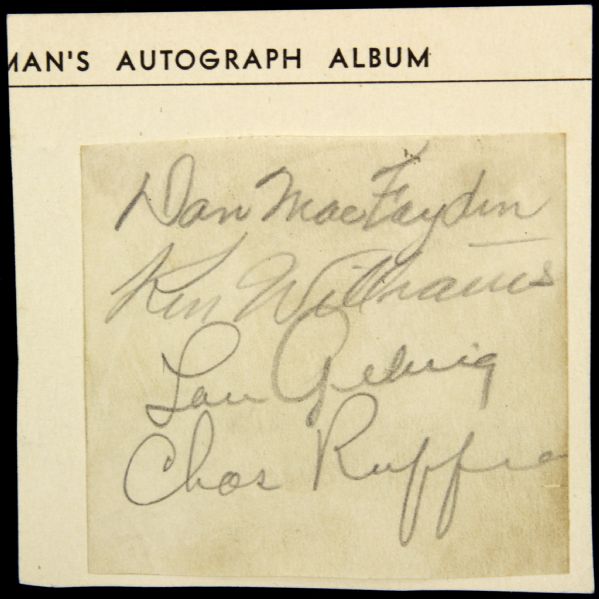 MAN'S AUTOGRAPH ALBUM
Dan MacFayden
Ken Williams
Lou Gehrig
Chas Ruffin